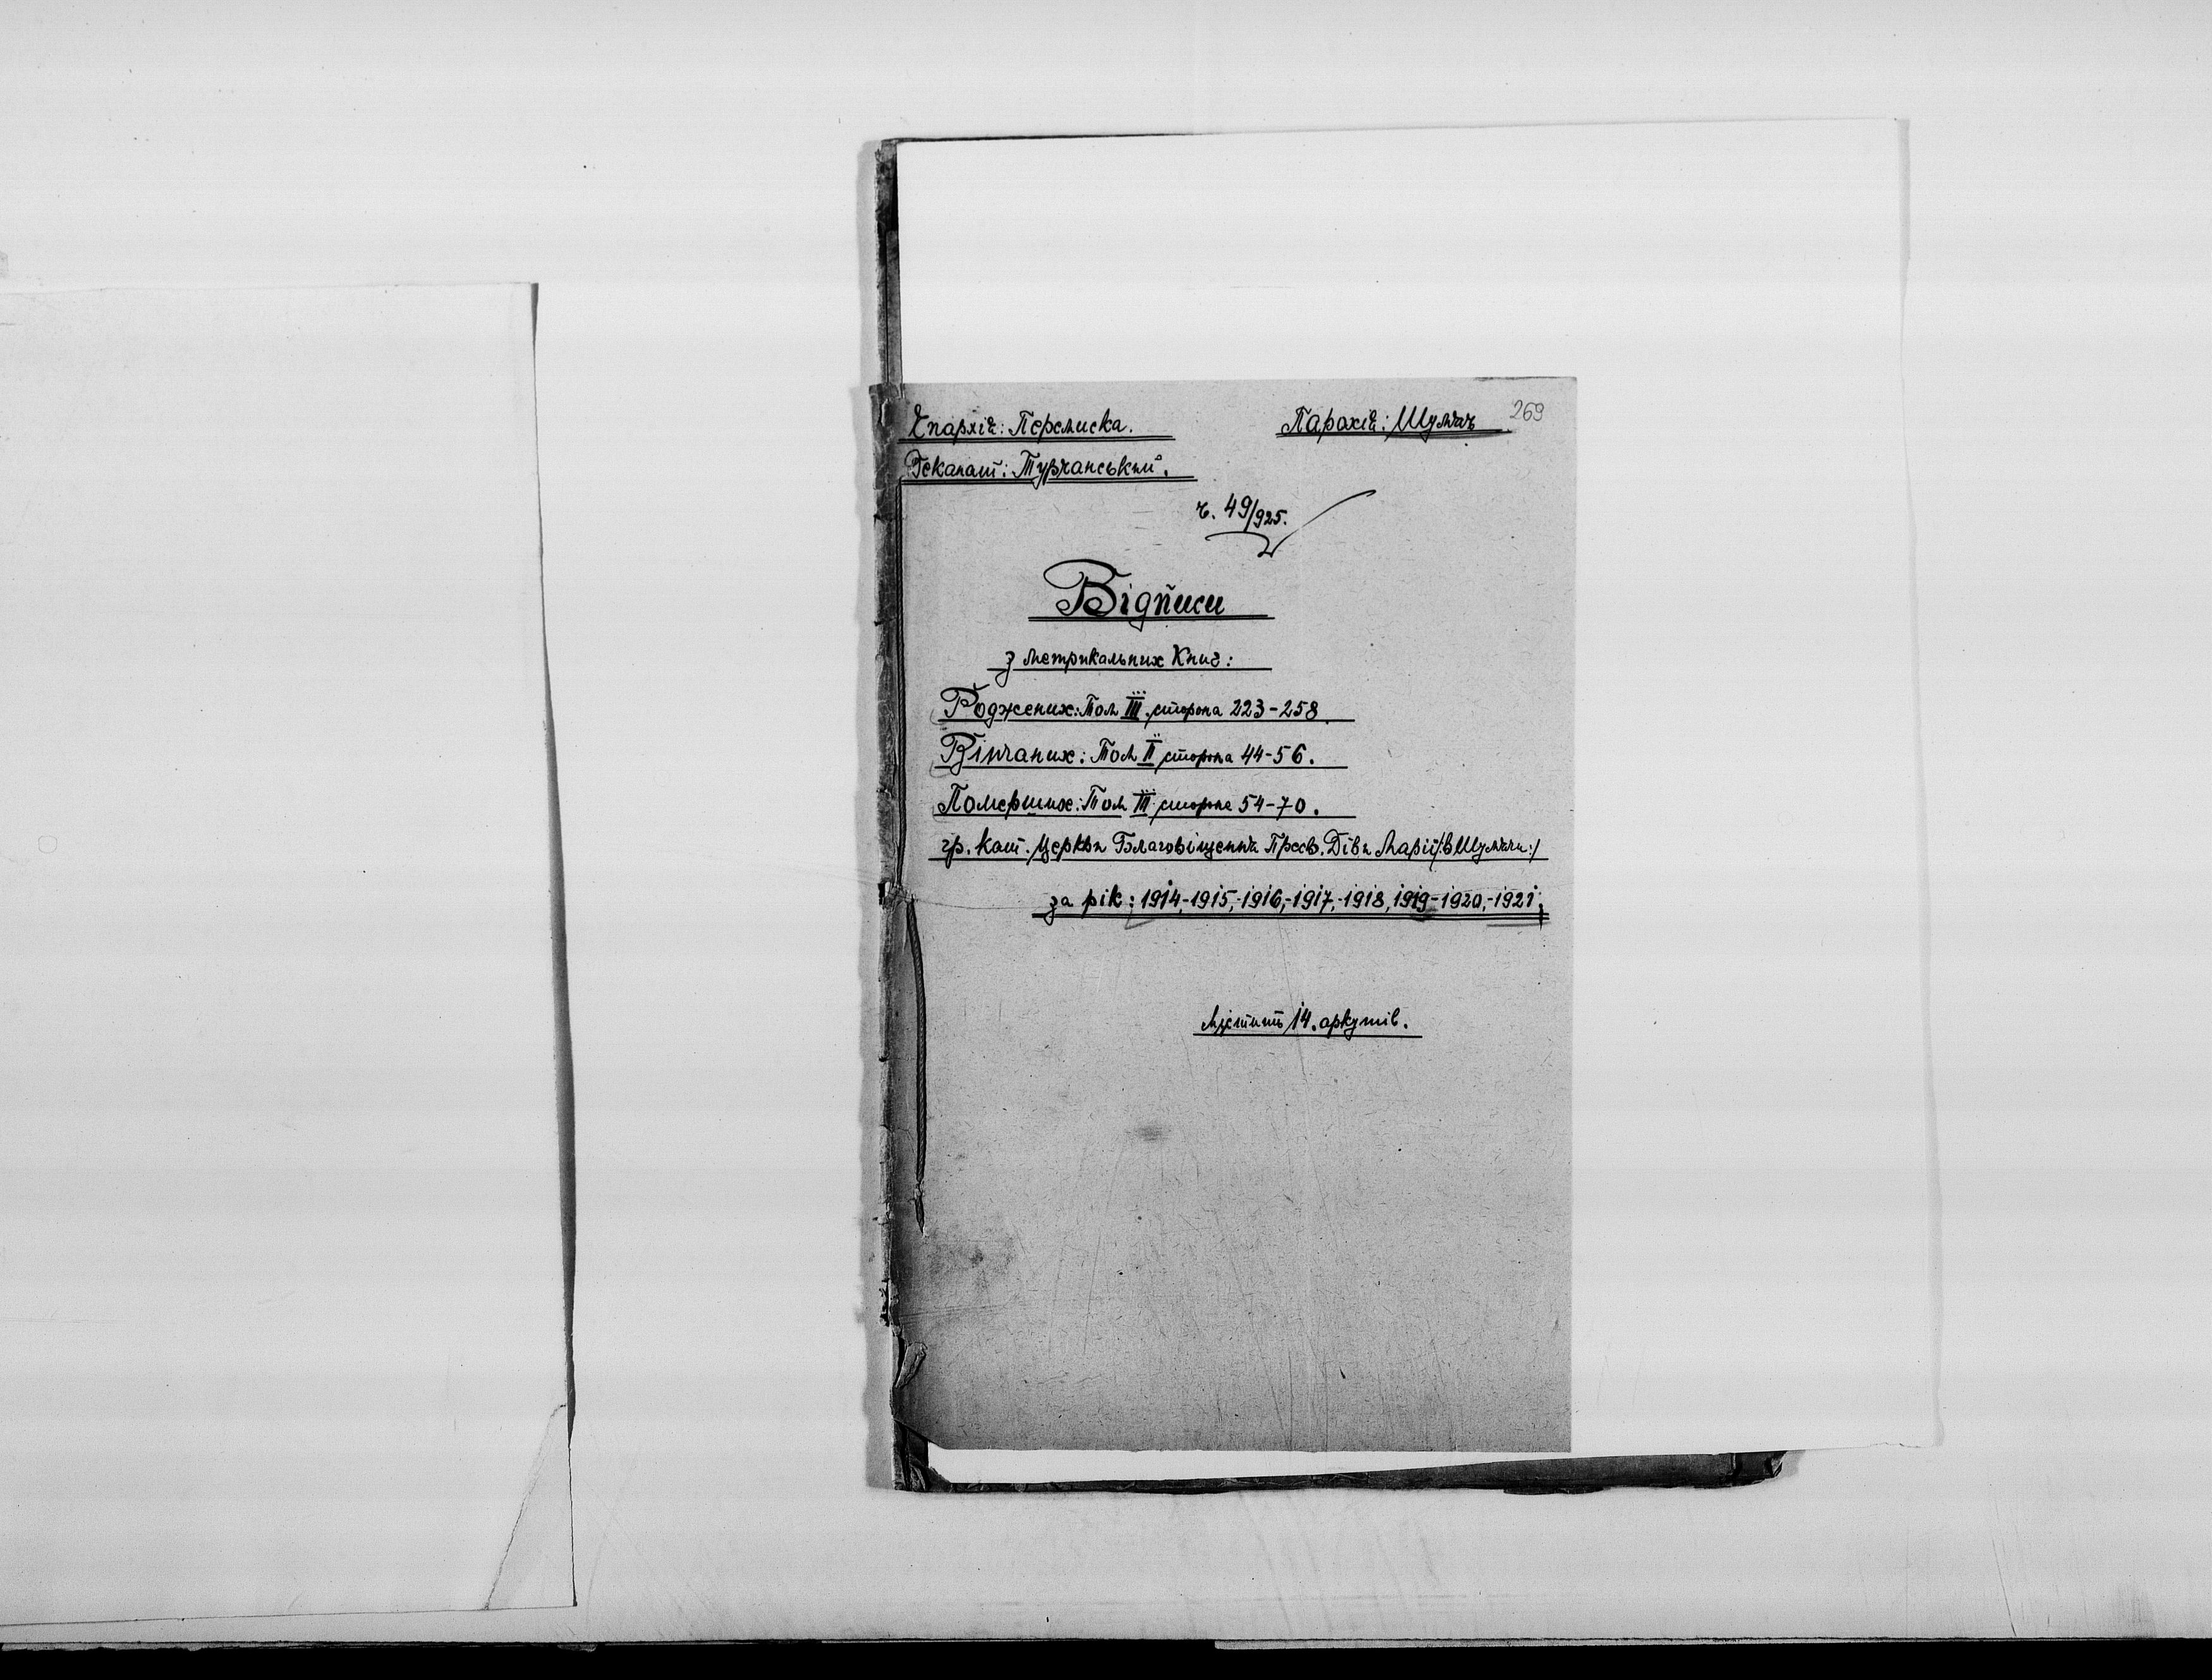 Епархія: Перемиска. Парохія: Шумяч 269
Деканат: Турчанський.
ч. 49/925.
Відписи
з метрикальних Книг:
Роджених: Том III. сторона 223-258
Вінчаних: Том II сторона 44-56.
Померших: Том III сторона 54-70.
гр. кат. Церкви Благовіщення Пресв. Діви Марії /:в Шумячи:/
за рік: 1914,-1915,-1916,-1917,-1918, 1919-1920,-1921.
Містить 14. аркушів.